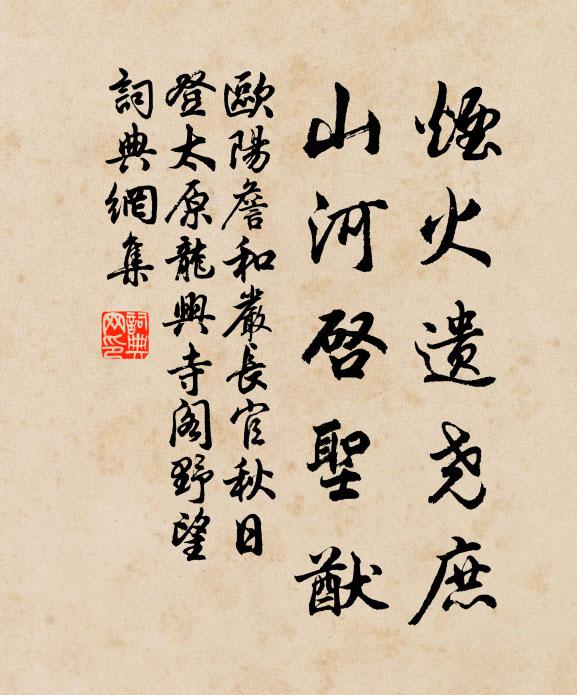 煙火遺尧庶
山河啓聖猷
歐陽詹和嚴長官秋日
登太原龍興寺阁野望
詞典網集
詞典网印